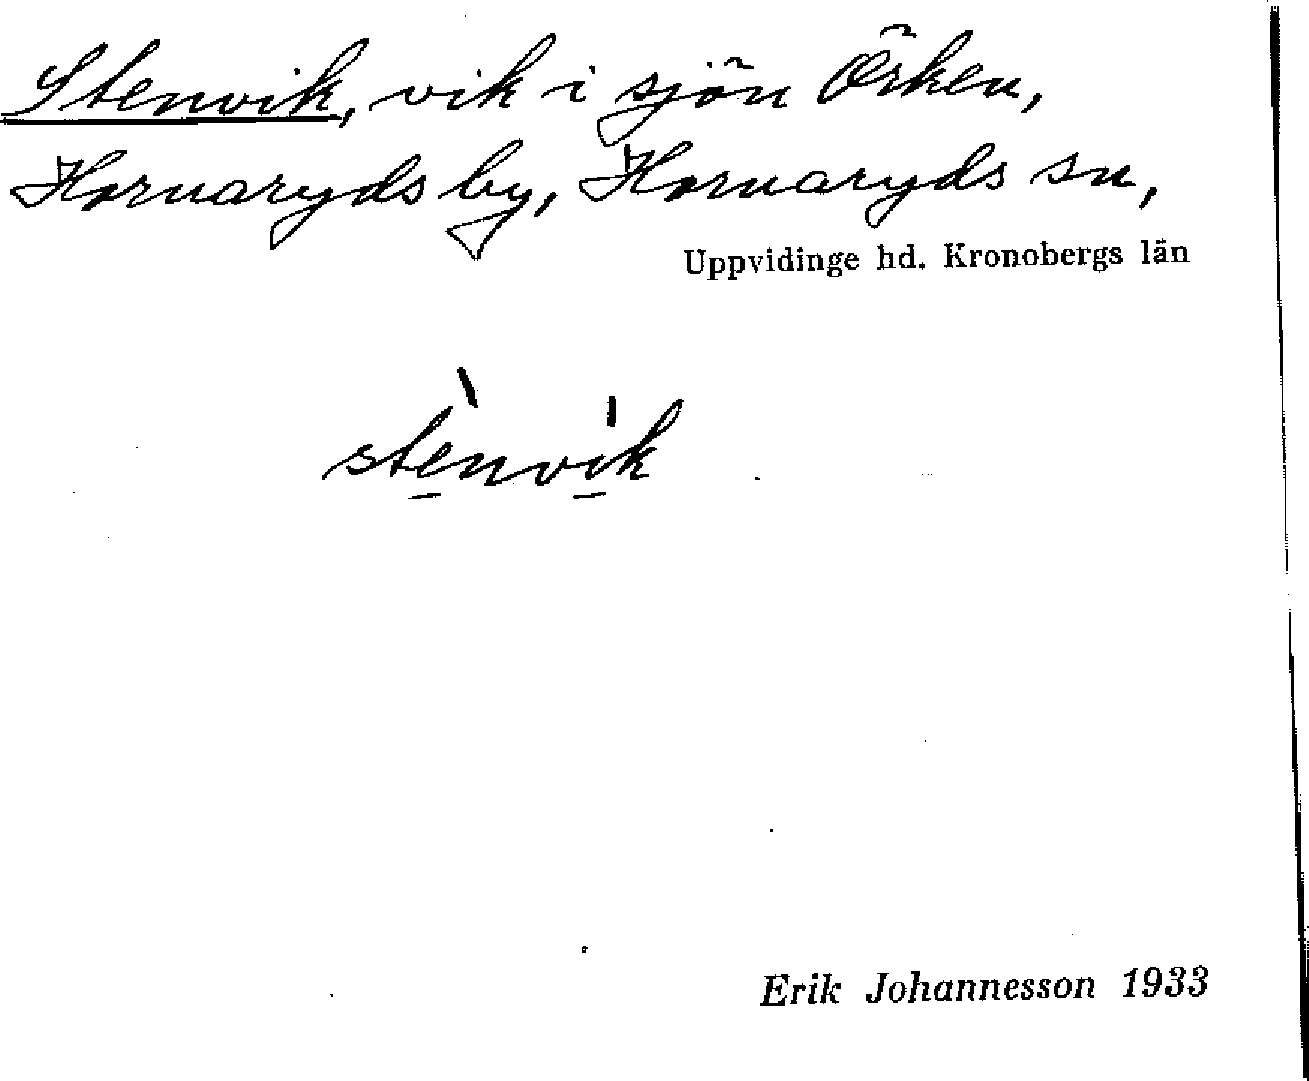 Stenvik, vik i sjön Örken,
Hornaryds by, Hornaryds sn,
Uppvidinge hd. Kronobergs län
stènvik
Erik Johannesson 1933